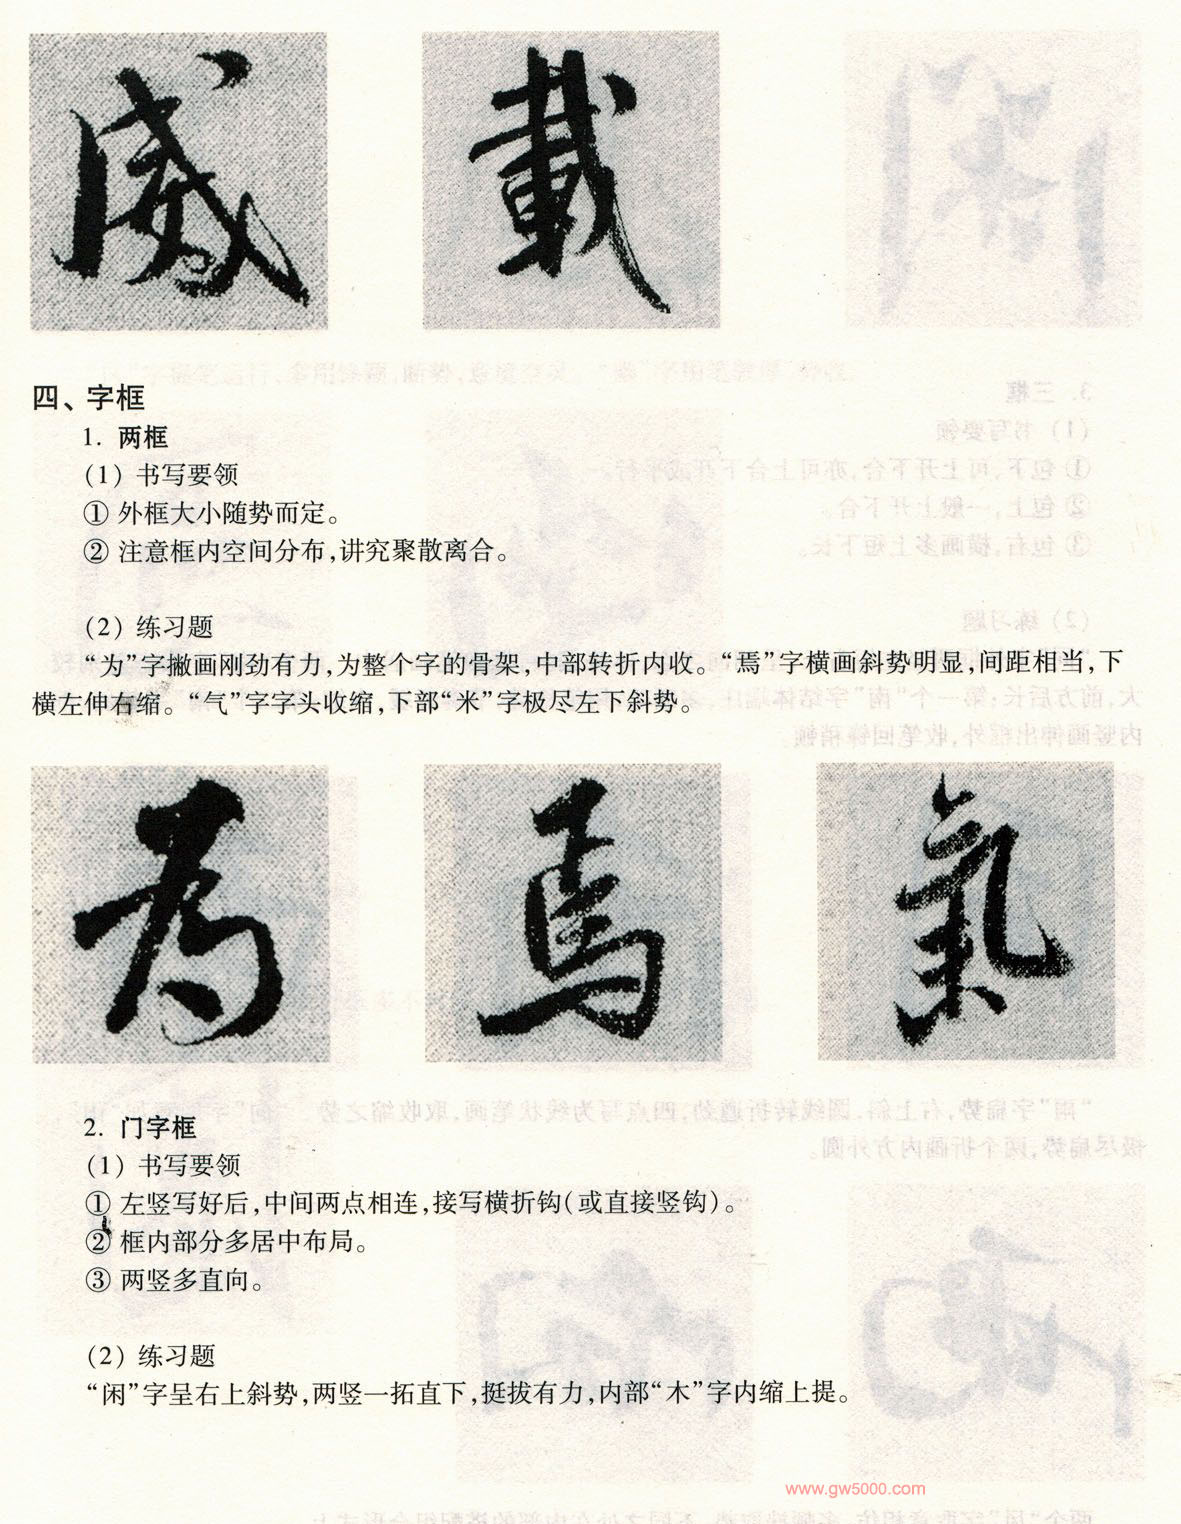 威 載
四、字框
1. 两框
(1) 书写要领
① 外框大小随势而定。
② 注意框内空间分布,讲究聚散离合。
(2) 练习题
“为”字撇画刚劲有力,为整个字的骨架,中部转折内收。“焉”字横画斜势明显,间距相当,下
横左伸右缩。“气”字字头收缩,下部“米”字极尽左下斜势。
為 焉 氣
2. 门字框
(1) 书写要领
① 左竖写好后,中间两点相连,接写横折钩(或直接竖钩)。
② 框内部分多居中布局。
③ 两竖多直向。
(2) 练习题
“闲”字呈右上斜势,两竖一拓直下,挺拔有力,内部“木”字内缩上提。
www.gw5000.com